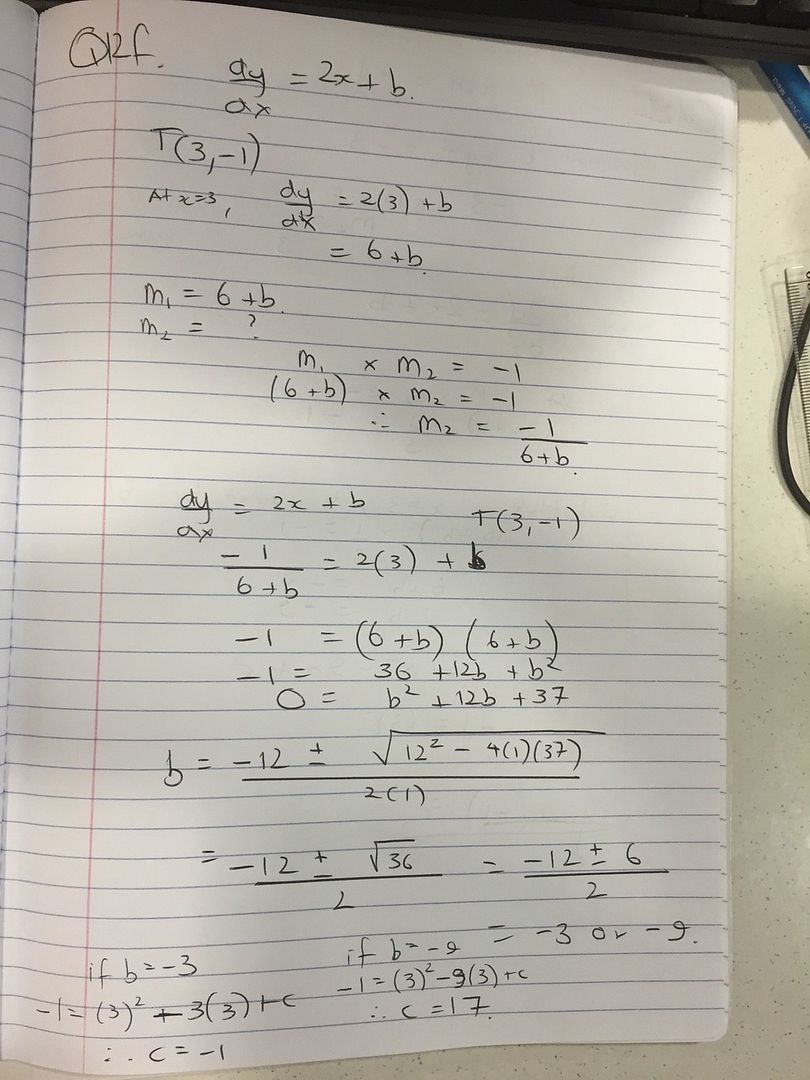 Q12f.
dy/dx = 2x + b.
T(3,-1)
At x=3, dy/dx = 2(3) + b
= 6 + b.
m₁ = 6 + b.
m₂ = ?
m₁ × m₂ = -1
(6 + b) × m₂ = -1
∴ m₂ = -1/(6+b).
dy/dx = 2x + b T(3,-1)
-1/(6+b) = 2(3) + b
-1 = (6+b) (6+b)
-1 = 36 + 12b + b²
0 = b² + 12b + 37
b = (-12 ± √(12² - 4(1)(37)))/2(1)
= (-12 ± √36)/2 = (-12 ± 6)/2
= -3 or -9.
if b = -3
-1 = (3)² - 3(3) + c
∴ c = -1
if b = -9
-1 = (3)² - 9(3) + c
∴ c = 17.